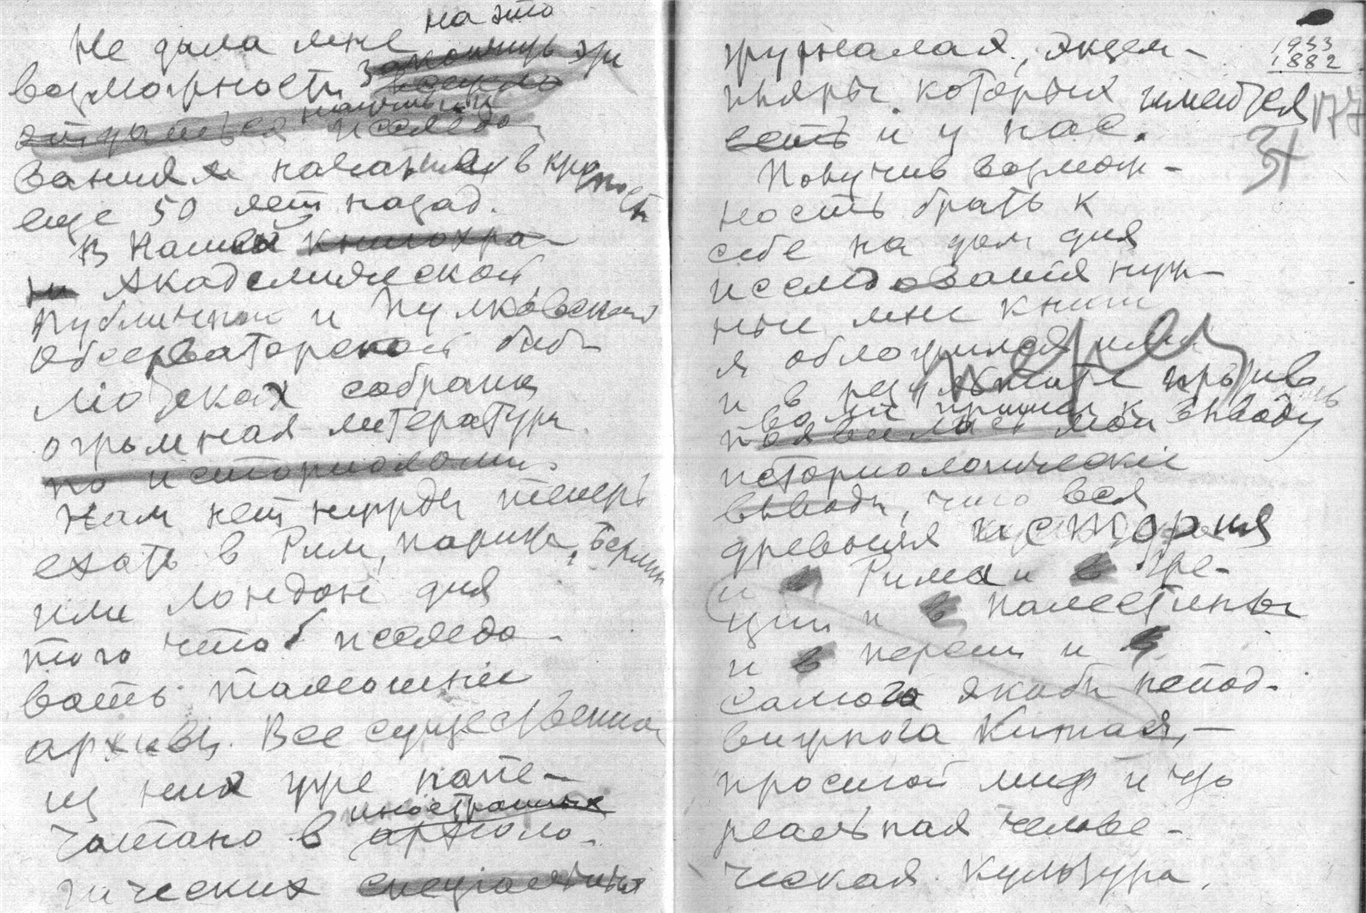 на это
Не дала мне
возможности закончить эти
научным
отдаться исследо-
ваниям начатым в крепости
еще 50 лет назад.
В нашей книгохра-
Академической
Публичной и Пулковской
Обсерваторской биб-
лиотеках собрана
огромная литература
по историологии.
Нам нет нужды теперь
ехать в Рим, Париж, Берлин
или Лондон для
того чтоб исследо-
вать тамошние
архивы. Все существенное
из них уже напе-
иностранных
чатано в археоло-
гических специальных
журналах, экзем-
пляры которых имеются
есть и у нас.
Получив возмож-
ность брать к
себе на дом для
исследования нуж-
ные мне книги
я обложился ими
и в результате
пришел к выводу
появились мои
историологические
выводы, что вся
древняя история
и Рима и в Гре-
ции и в Палестины
и в Персии и в
самого якоби непод-
вижного Китая, —
простой миф и что
реальная челове-
ческая культура.
1933
1882
177
31